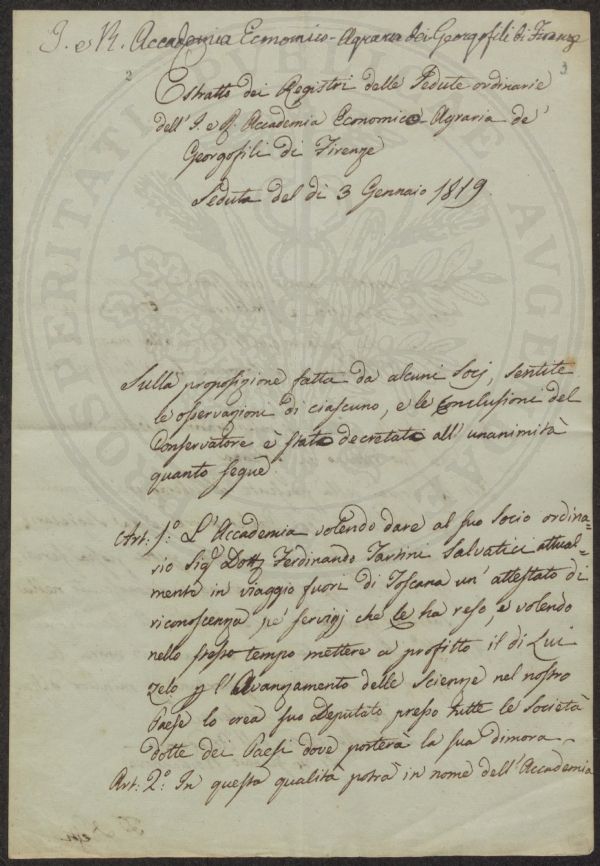 I. e R. Accademia Economico-Agraria dei Georgofili di Firenze
2
3
Estratto dei Registri delle Sedute ordinarie
dell'I. e R. Accademia Economico-Agraria de'
Georgofili di Firenze
Seduta del dì 3 Gennaio 1819.
Sulla proposizione fatta da alcuni Socj, sentite
le osservazioni di ciascuno, e le Conclusioni del
Conservatore è stato decretato all'unanimità
quanto segue
Art: 1.° L'Accademia volendo dare al suo Socio ordina=
rio Sigr Dott Ferdinando Tartini Salvatici attual=
mente in viaggio fuori di Toscana un'attestato di
riconoscenza pe' servigj che le ha reso, e volendo
nello stesso tempo mettere a profitto il di Lui
zelo p l'Avanzamento delle Scienze nel nostro
Paese lo crea suo Deputato presso tutte le Società
dotte dei Paesi dove porterà la sua dimora
Art: 2.° In questa qualità potrà in nome dell'Accademia
PROSPERITATI PUBLICAE AUGENDAE